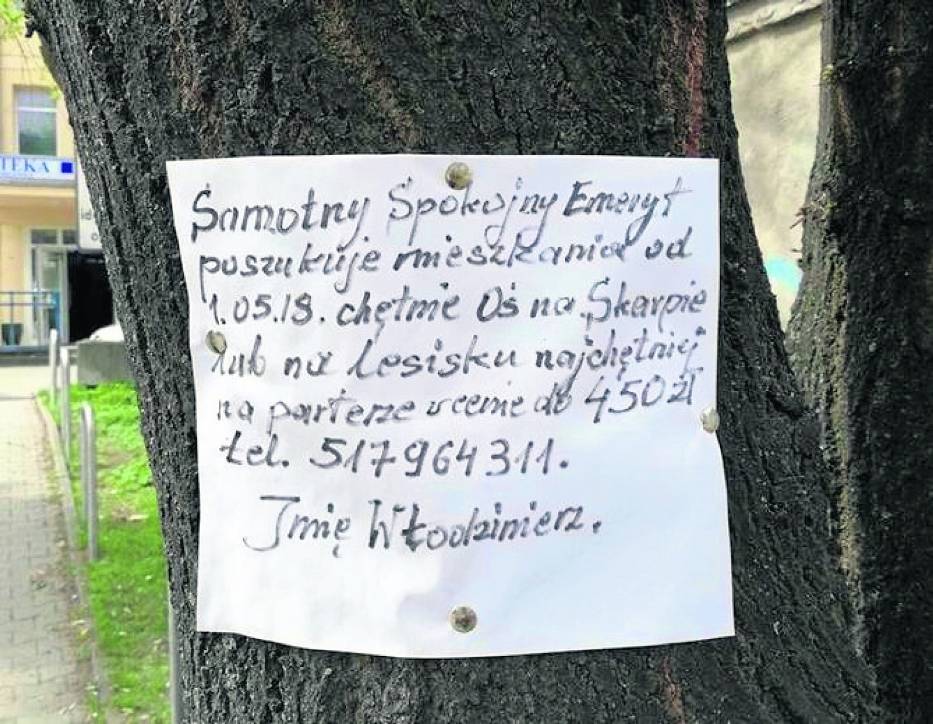 TEKA
Samotny Spokojny Emeryt
poszukuje mieszkania od
1.05.18. chętnie Oś na Skarpie
lub na Lesisku najchętniej
na parterze w cenie do 450 zł
tel. 517964311.
Imię Włodzimierz.